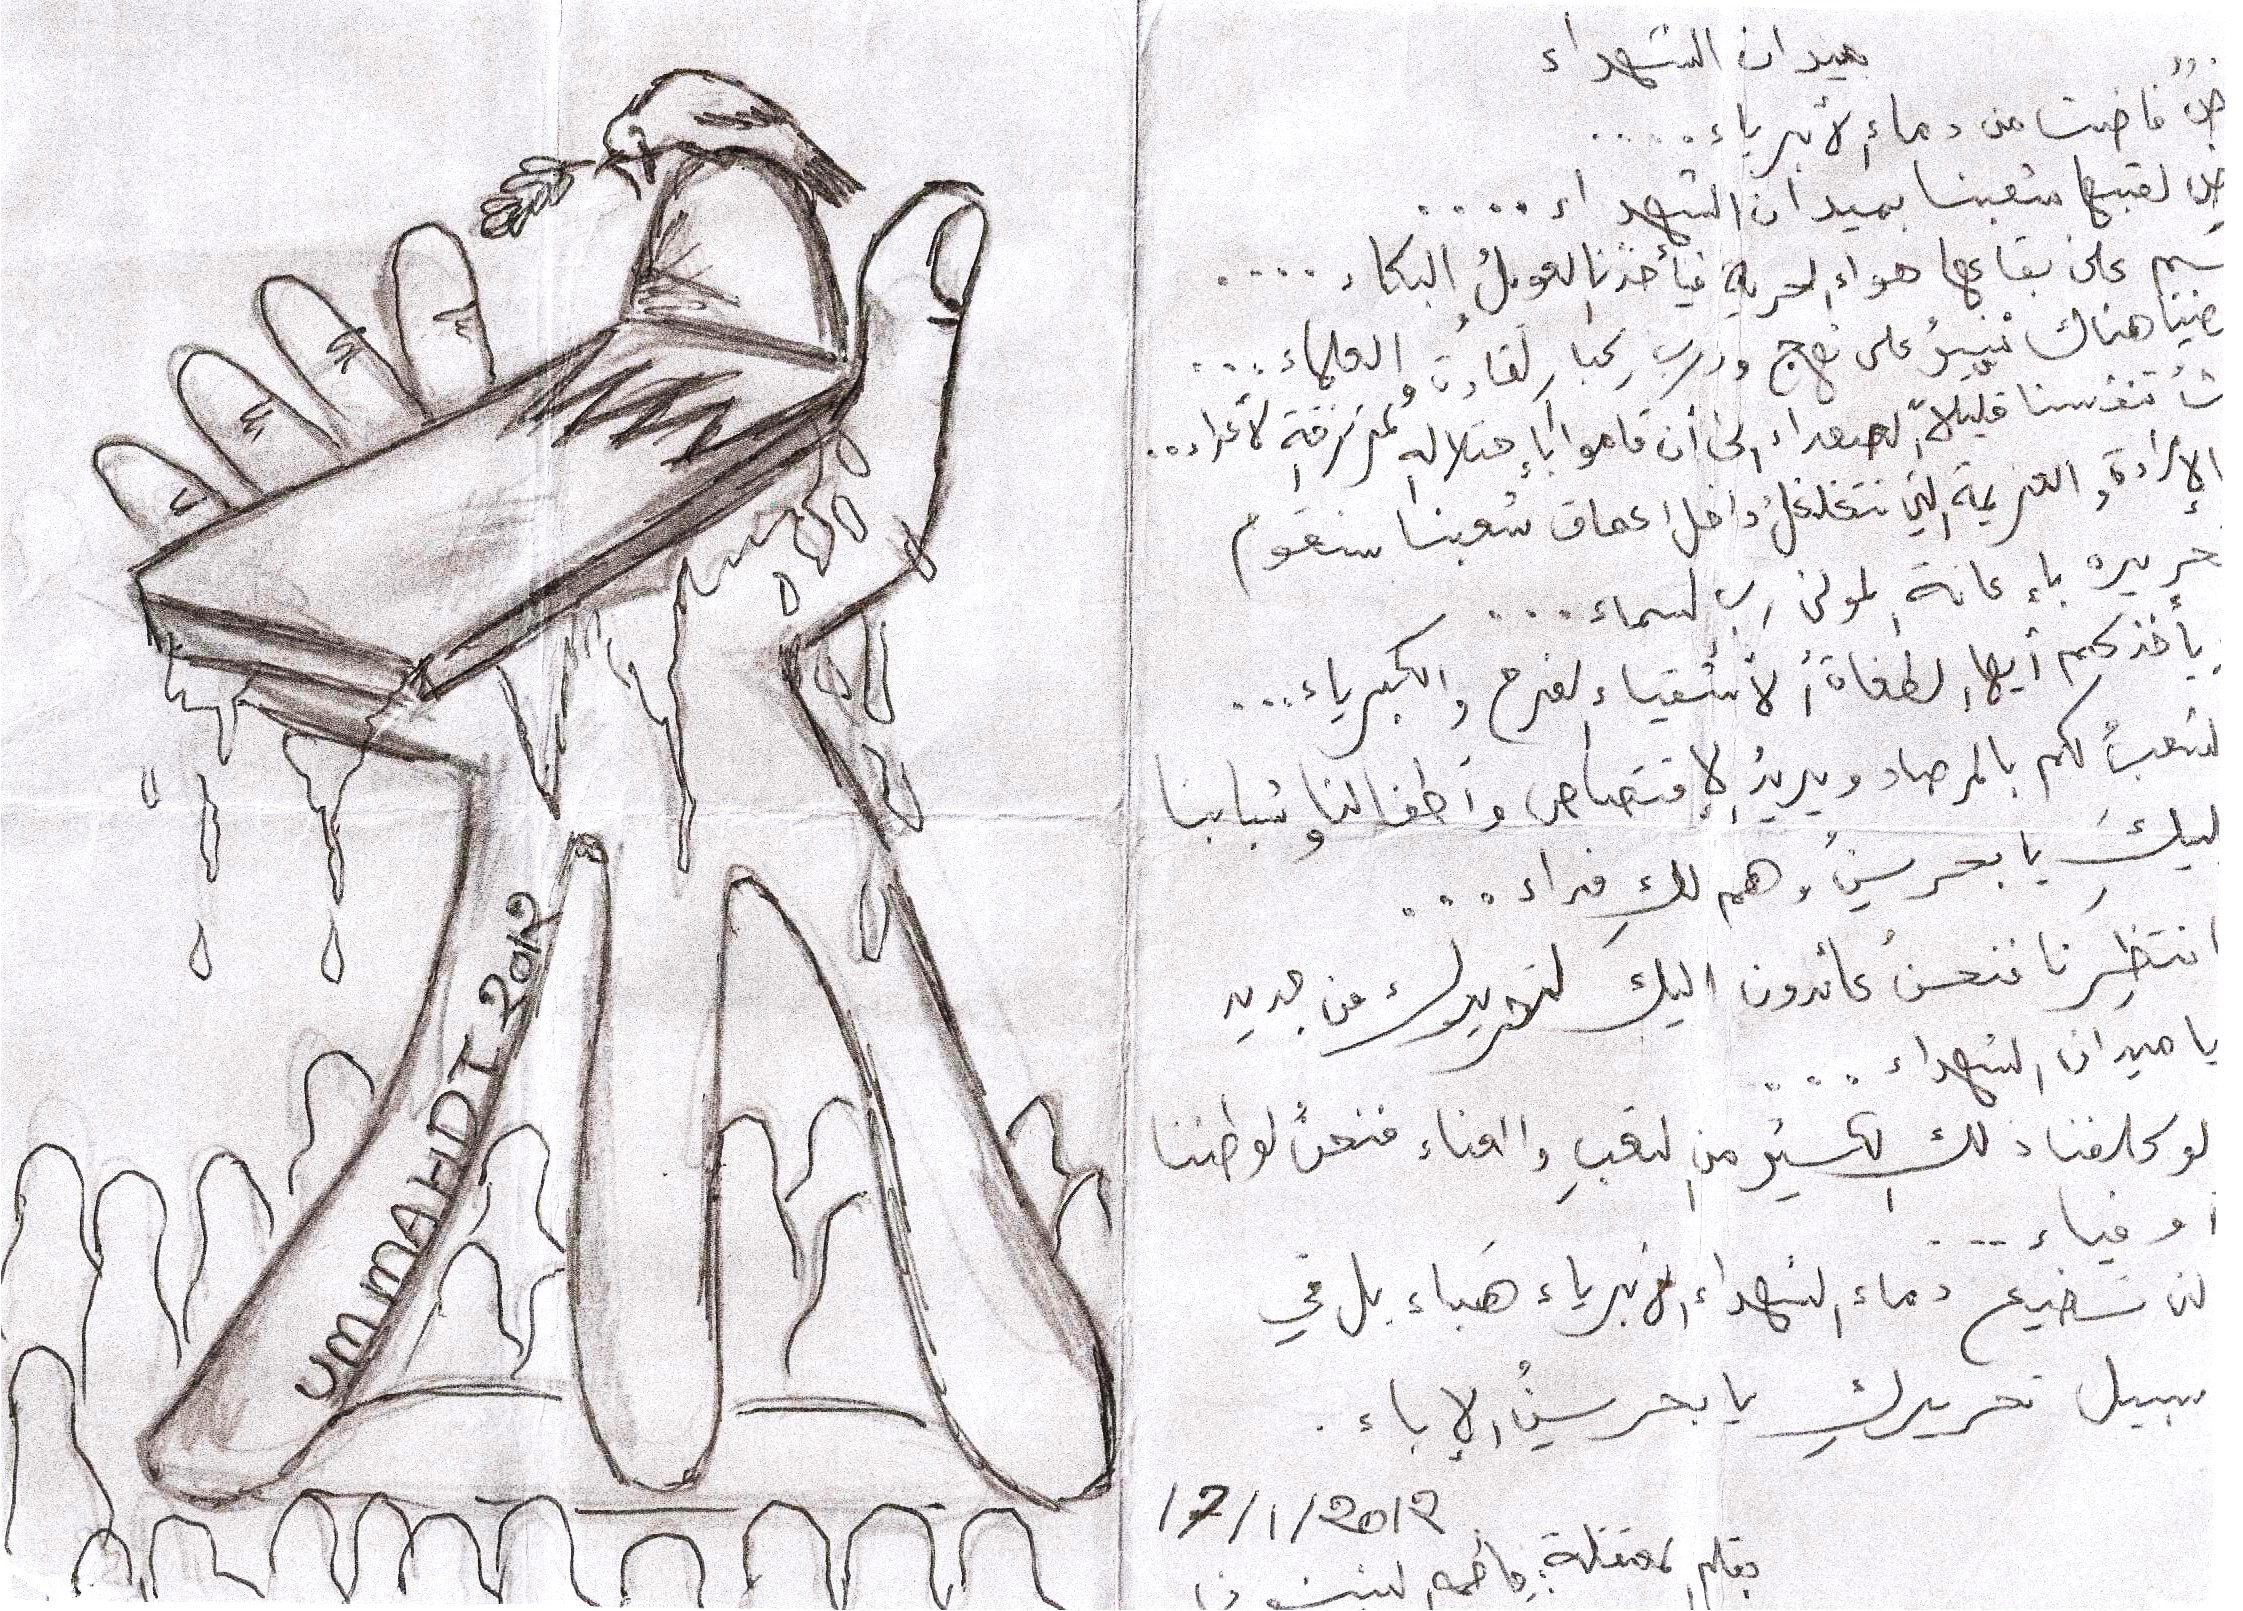 ميدان الشهداء
فاضت من دماء الأبرياء....
لقبها شعبنا بميدان الشهداء....
على بقاعها هواء الحرية فيأخذنا العويل والبكاء....
هناك نسير على نهج ودرب كبار القادة والعلماء...
تنفسنا قليلاً الصعداء إلى أن قاموا بإحتلاله المرتزقة الأعداء..
الإرادة والعزيمة التي تتغلغل داخل أعماق شعبنا سنقوم
بإعانة المولى رب السماء...
يأخذكم أيها الطغاة الأشقياء الفرح والكبرياء...
لكم بالمرصاد ويريد الإقتصاص وأطفالنا وشبابنا
لبيكِ يا بحرين وهم لكِ فداء...
انتظرنا فنحن عائدون اليك لتحريرك من جديد
يا ميدان الشهداء...
لو كلفنا ذلك الكثير من التعب والعناء فنحن لوطننا
أوفياء...
لن تضيع دماء الشهداء الأبرياء هباء بل في
سبيل تحريركِ يا بحرين الإباء.
17/1/2012
بقلم المعتقلة:
UMMAHDI 2012